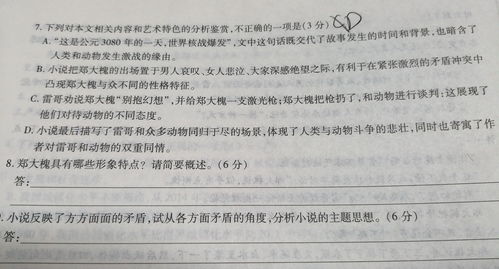 7. 下列对本文相关内容和艺术特色的分析鉴赏,不正确的一项是(3分) D
A. “这是公元3080年的一天,世界核战爆发”,文中这句话既交代了故事发生的时间和背景,也暗含了
人类和动物发生激战的缘由。
B. 小说把郑大槐的出场置于男人哀叹、女人悲泣、大家深感绝望之际,有利于在紧张激烈的矛盾冲突中
凸现郑大槐与众不同的性格特征。
C. 雷哥劝说郑大槐“别抱幻想”,并给郑大槐一支激光枪;郑大槐把枪扔了,和动物进行谈判;这展现了
他们对待动物的不同态度。
D. 小说最后描写了雷哥和众多动物同归于尽的场景,体现了人类与动物斗争的悲壮,同时也寄寓了作
者对雷哥和动物的双重同情。
8. 郑大槐具有哪些形象特点？请简要概述。(6分)
答:
. 小说反映了方方面面的矛盾,试从各方面矛盾的角度,分析小说的主题思想。(6分)
答: